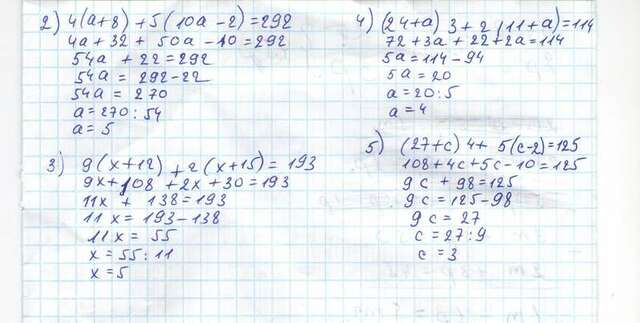 2) 4(a+8) + 5(10a-2)=292
4a+32+50a-10=292
54a+22=292
54a=292-22
54a=270
a=270:54
a=5
3) 9(x+12)+2(x+15)=193
9x+108+2x+30=193
11x+138=193
11x=193-138
11x=55
x=55:11
x=5
4) (24+a)3+2(11+a)=114
72+3a+22+2a=114
5a=114-94
5a=20
a=20:5
a=4
5) (27+c)4+5(c-2)=125
108+4c+5c-10=125
9c+98=125
9c=125-98
9c=27
c=27:9
c=3